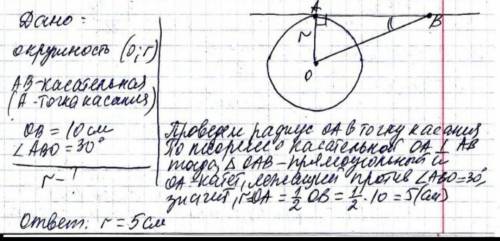 Дано:
окружность (О; r)
АВ-касательная
(А-точка касания)
ОВ = 10 см
∠АВО = 30°
r - ?
А
В
r
О
Проведем радиус ОА в точку касания
По теореме о касательной ОА ⊥ АВ
тогда, Δ ОАВ - прямоугольный и
ОА-катет, лежащий против ∠АВО=30°,
значит, r=ОА = 1/2 ОВ = 1/2 · 10 = 5 (см)
Ответ: r = 5 см